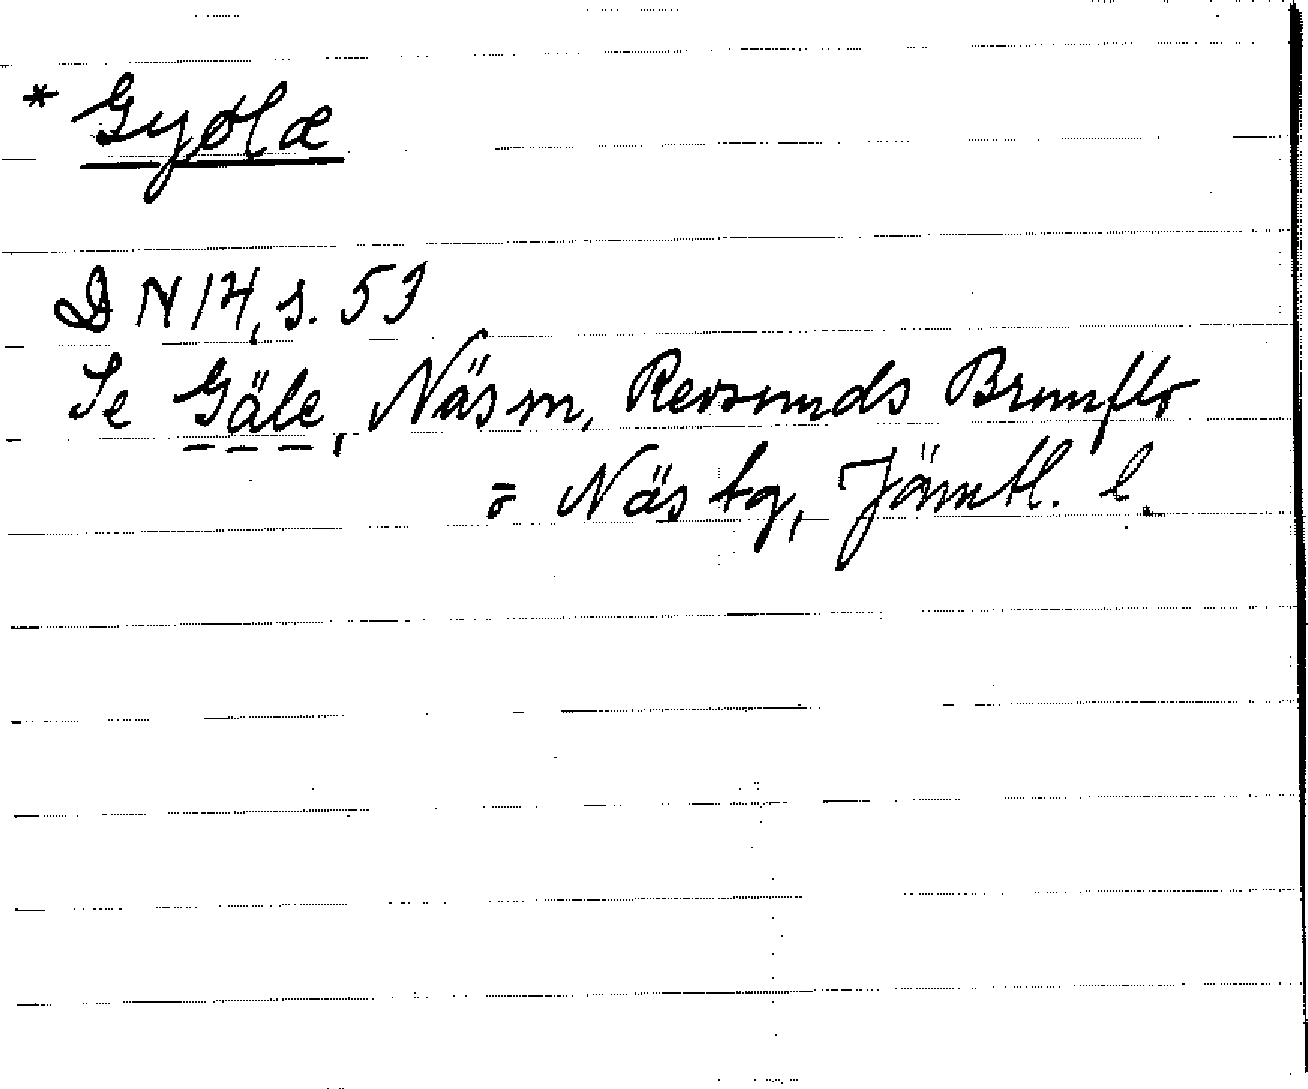 * Gyølæ
DN 14, s. 53
Se Gäle, Näs sn, Revsunds Brunflo
o Näs tg, Jämtl. l.